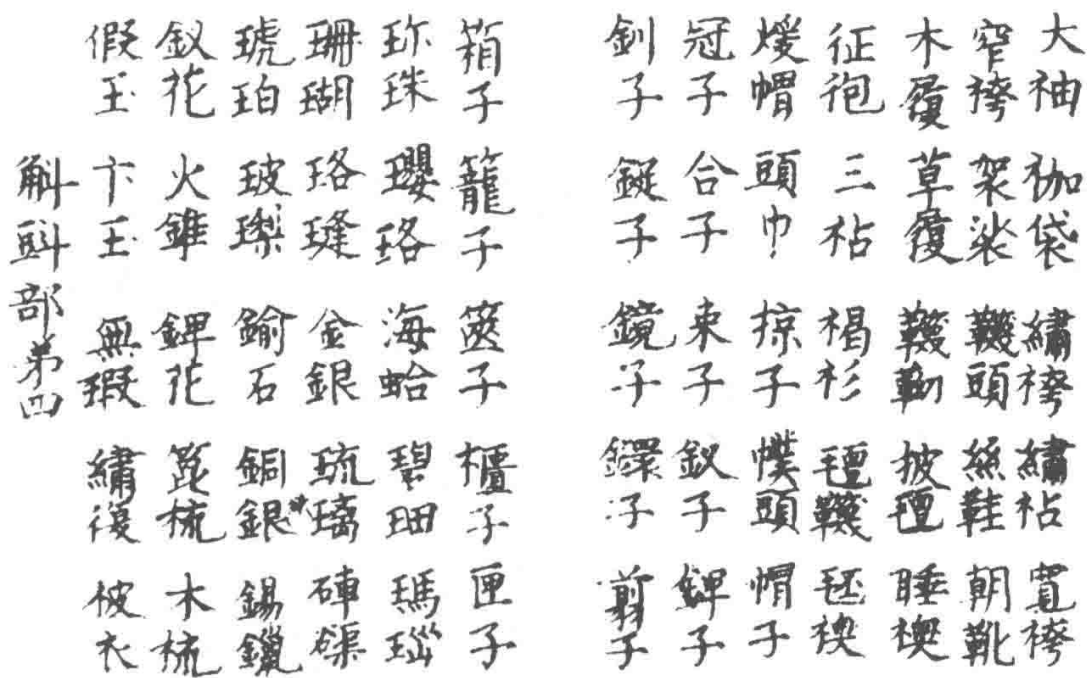 大袖 枷袋 繡袴 繡袩 寬袴
窄袴 袈裟 韈頭 絲鞋 朝靴
木履 草履 韈靿 披氈 睡襖
征袍 三袩 褐衫 氈韈 毡襖
煖帽 頭巾 掠子 幞頭 帽子
冠子 合子 束子 釵子 錍子
釧子 鋌子 鏡子 鐶子 剪子
箱子 籠子 篋子 櫃子 匣子
珎珠 瓔珞 海蛤 碧珊 瑪瑙
珊瑚 珞 金銀 琉璃 硨磲
琥珀 玻瓈 鍮石 銅銀 錫鑞
釵花 火錐 錍花 箆梳 木梳
假玉 卞玉 無瑕 繡複 被衣
斛㪷部第四